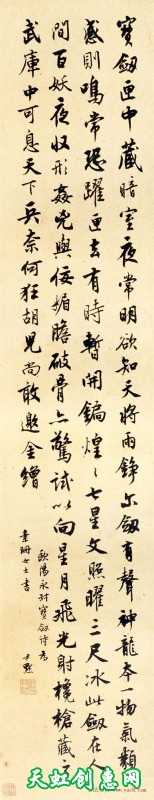 寶劔匣中藏暗室夜常明欲知天將雨錚尒劔有聲神龍本一物氣類
感則鳴常恐躍匣去有時暫開鐍煌〻七星文照曜三尺冰此劔在人
間百妖夜収形姦兇與佞媚膽破骨亦驚試以向星月飛光射欃槍藏之
武庫中可息天下兵奈何狂胡兒尚敢邀金繒
歐陽永叔寶劔詩為
書珊女士書 尹默
天虹创意网